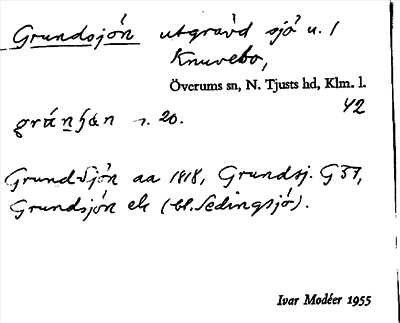 Grundsjön utgrävd sjö u. /
Knuvebo,
Överums sn, N. Tjusts hd, Klm. l.
42
gránʃǝn r. 20.
Grundsjön aa 1818, Grundsj. G 57,
Grundsjön ek (bl. Sedingsjö).
Ivar Modéer 1955